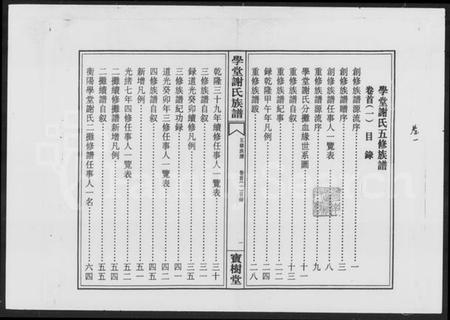 學堂謝氏五修族譜
卷首(一)目錄
創修族譜源流序……一
創修族譜贈序……三
創修族譜任事人一覽表……八
重修族譜源流序……九
學堂謝氏分攤血緣世系圖……十一
重修族譜自叙……十三
重修族譜紀事……十三
錄乾隆甲午年凡例……二四
重修族譜跋……二八
學堂謝氏族譜
五修族譜
卷首(一)目錄
一
寶樹堂
乾隆三十九年續修任事人一覽表……三十
三修族譜自叙……三一
錄道光癸卯續修凡例……三五
三修族譜紀功錄……四一
道光癸卯年三修任事人一覽表……四二
四修族譜自叙……四五
新增凡例……五一
光緒七年四修任事人一覽表……五二
二攤續修攤譜新增凡例……五四
二攤續譜自叙……五五
衡陽學堂謝氏二攤修譜任事人一名……六四